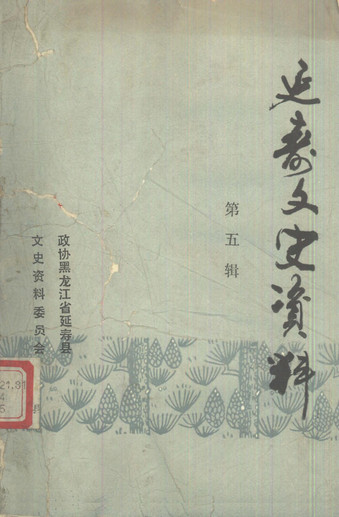 延寿文史资料
第五辑
政协黑龙江省延寿县
文史资料委员会